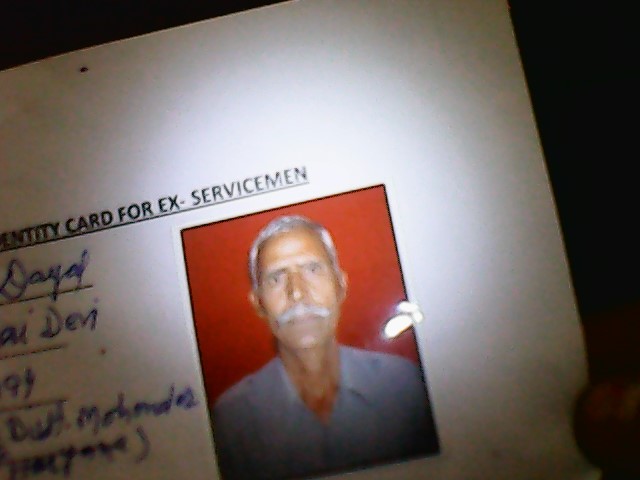 ENTITY CARD FOR EX- SERVICEMEN
Dayal
ai Devi
Distt. Mohender